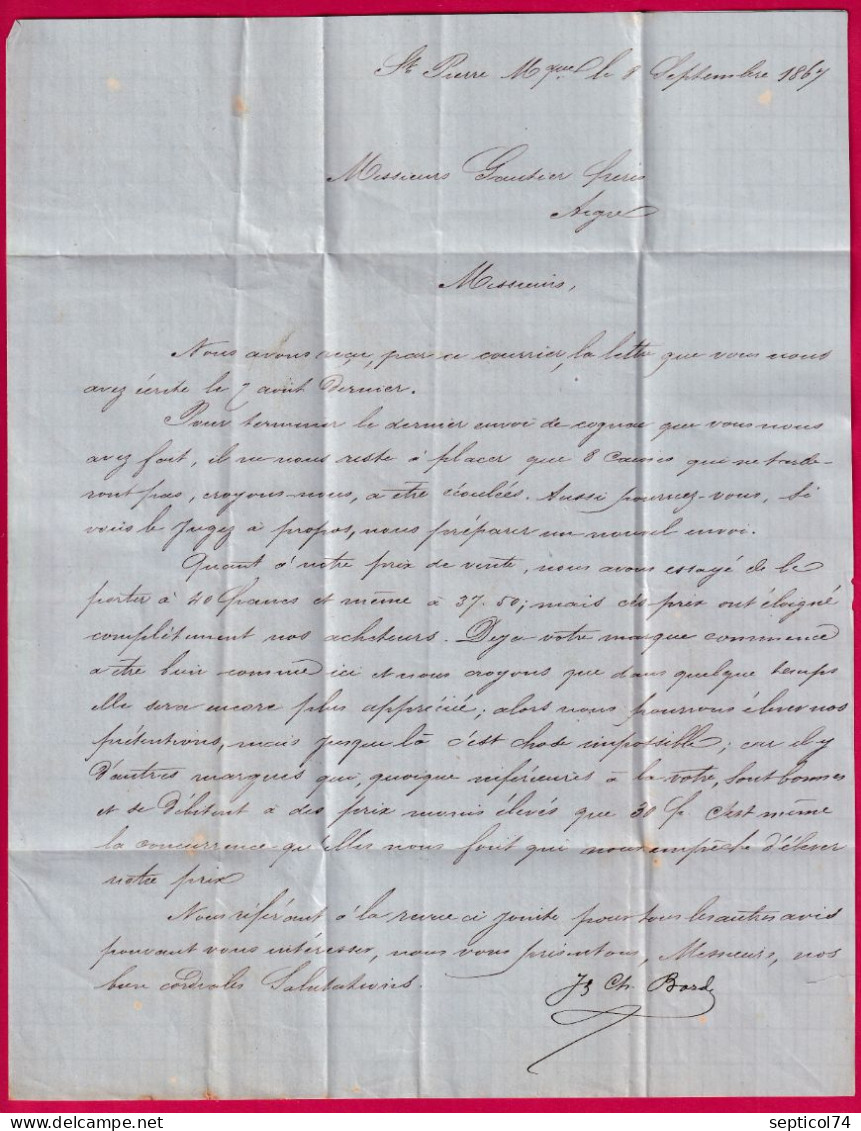 St Pierre Mque le 8 Septembre 1867
Messieurs Gautier frères
Aigre
Messieurs,
Nous avons reçu, par ce courrier, la lettre que vous nous
avez écrite le 7 août dernier.
Pour terminer le dernier envoi de cognac que vous nous
avez fait, il ne nous reste à placer que 8 caisses qui ne tarde-
ront pas, croyons-nous, a être écoulées. Aussi pourrez-vous, si
vous le jugez à propos, nous préparer un nouvel envoi.
Quant à notre prix de vente, nous avons essayé de le
porter à 40 francs et même à 37.50; mais ces prix ont éloigné
complètement nos acheteurs. Déja votre marque commence
a être bien connue ici et nous croyons que dans quelque temps
elle sera encore plus appréciée; alors nous pourrons élever nos
prétentions, mais jusque là c'est chose impossible; car il y
d'autres marques qui, quoique inférieures à la votre, sont bonnes
et se débitent à des prix moins élevés que 30 f. c'est même
la concurrence qu'elles nous font qui nous empêche d'élever
notre prix
Nous référant à la revue ci jointe pour tous les autres avis
pouvant vous intéresser, nous vous présentons, Messieurs, nos
bien cordiales Salutations.
Ch. Borde
septicol74